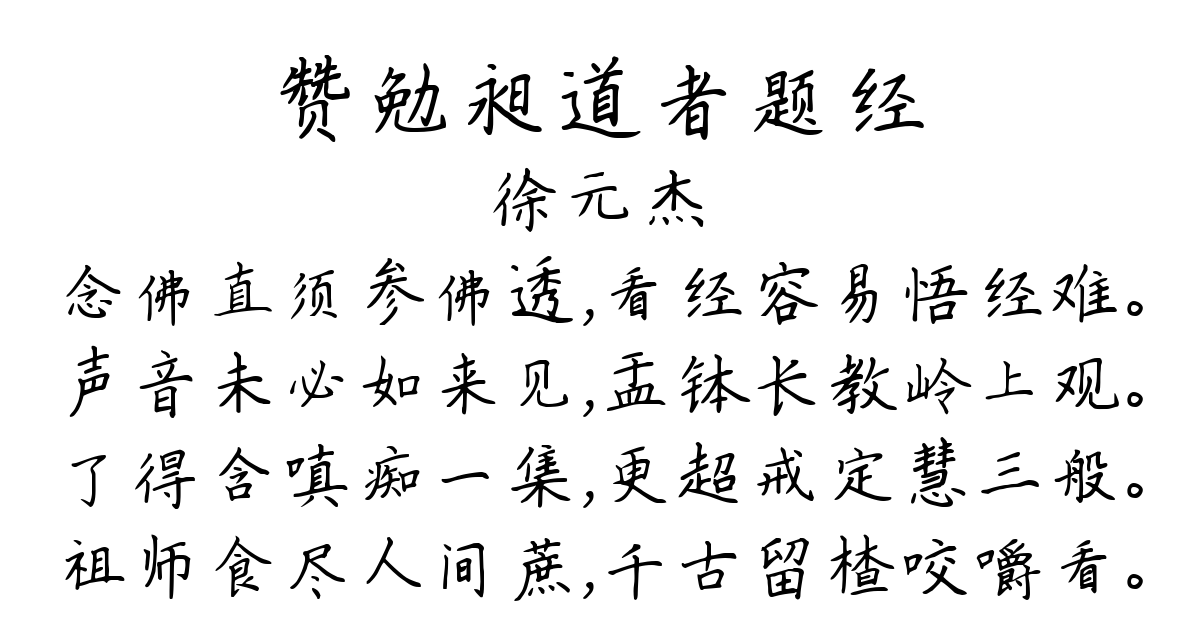 赞勉昶道者题经
徐元杰
念佛直须参佛透,看经容易悟经难。
声音未必如来见,盂钵长教岭上观。
了得含嗔痴一集,更超戒定慧三般。
祖师食尽人间蔗,千古留楂咬嚼看。